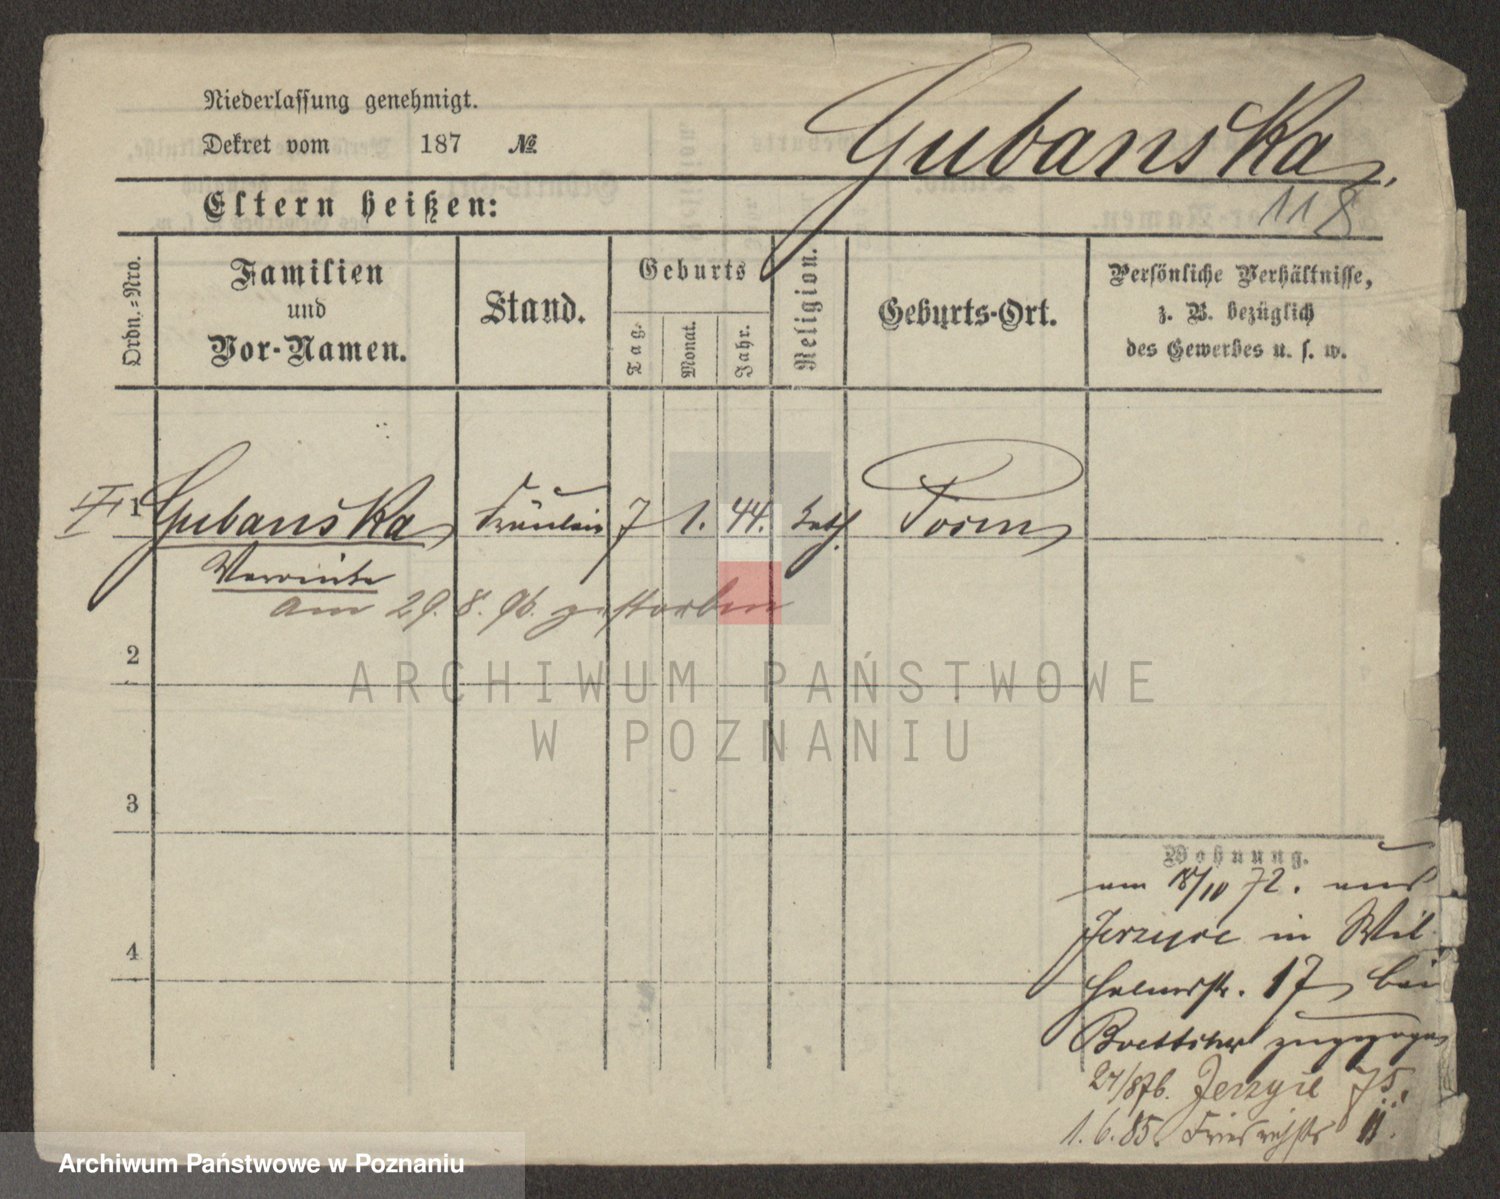 Niederlassung genehmigt.
Dekret vom 187 №
Gubanska
118
Eltern heißen:
Ordn.-Nro.
Familien
und
Vor-Namen.
Stand.
Geburts
Tag.
Monat.
Jahr.
Religion.
Geburts-Ort.
Persönliche Verhältnisse,
z. B. bezüglich
des Gewerbes u. s. w.
1 Gubanska Fräulein 7 1. 44. kath. Posen
am 29. 8. 96. gestorben
2
ARCHIWUM PAŃSTWOWE
W POZNANIU
3
4
Wohnung.
am 18/10 72. aus
Jerzyce in Wil-
helmstr. 17 bei
Boettcher zugezogen
Jerzyce 75.
1. 6. 85. Friedrichstr 11.
Archiwum Państwowe w Poznaniu